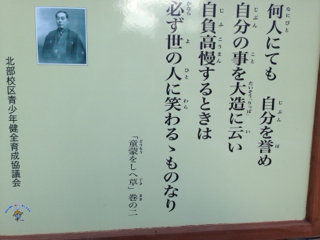 何人にても　自分を誉め
自分の事を大造に云い
自負高慢するときは
必ず世の人に笑わるゝものなり
「童蒙をしへ草」巻の二
北部校区青少年健全育成協議会